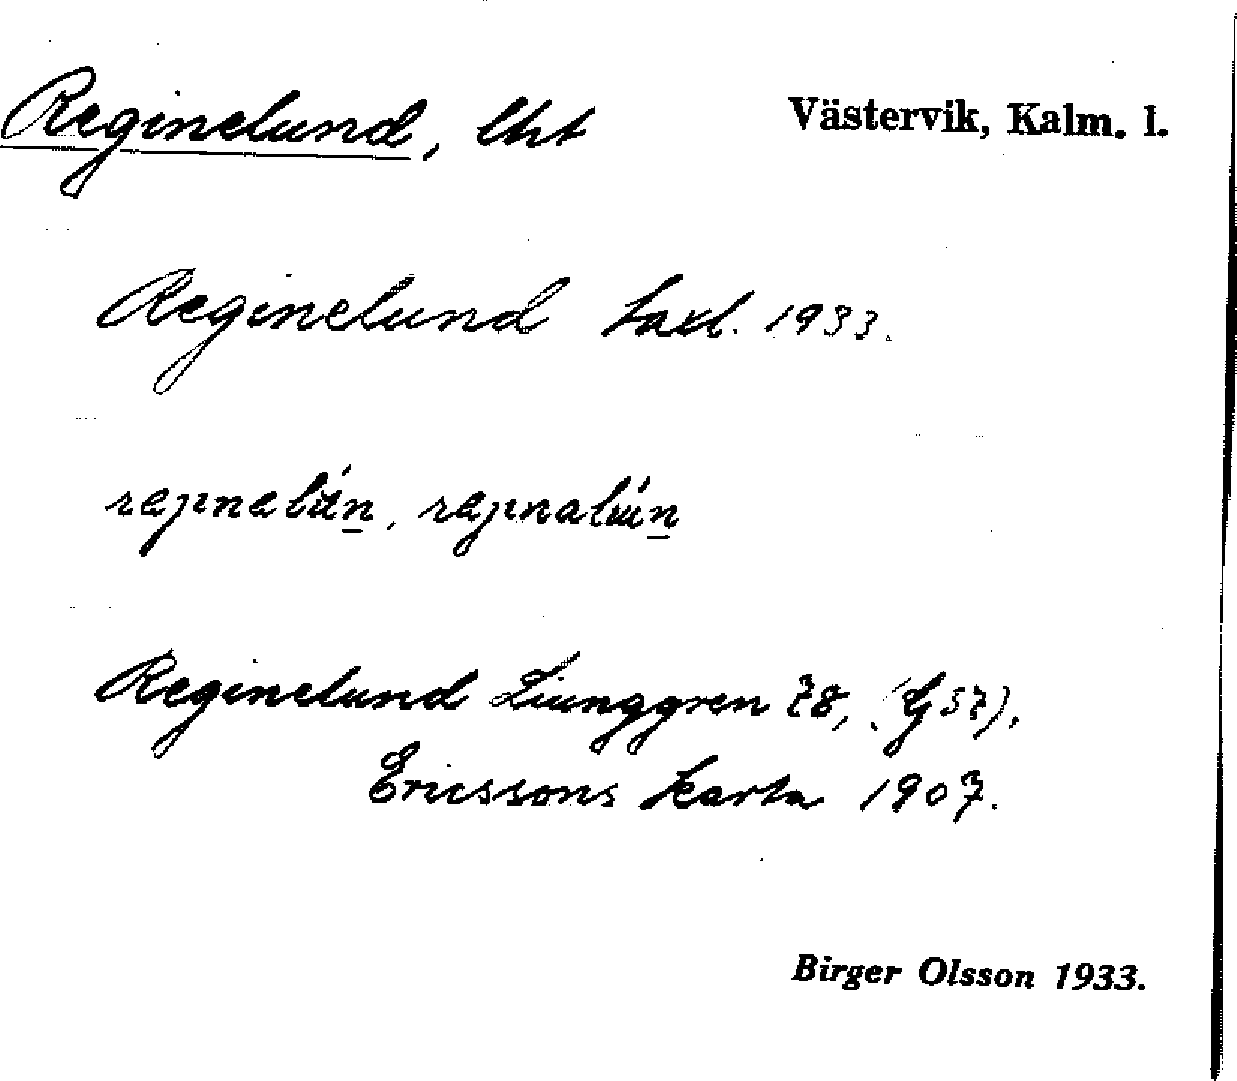 Reginelund, lht Västervik, Kalm. l.
Reginelund taxl. 1933.
Reginelund Ljunggren 78, (G 57),
Ericssons karta 1907.
Birger Olsson 1933.